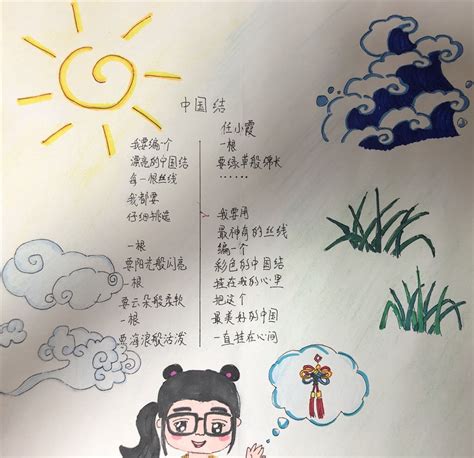 中国结
任小霞
我要编个
漂亮的中国结
每一根丝线
我都要
仔细挑选
一根
要阳光般闪亮
一根
要云朵般柔软
一根
要海浪般活泼
一根
要绿草般绵长
……
我要用
最神奇的丝线
编一个
彩色的中国结
挂在我的心里
把这个
最美好的中国
一直挂在心间